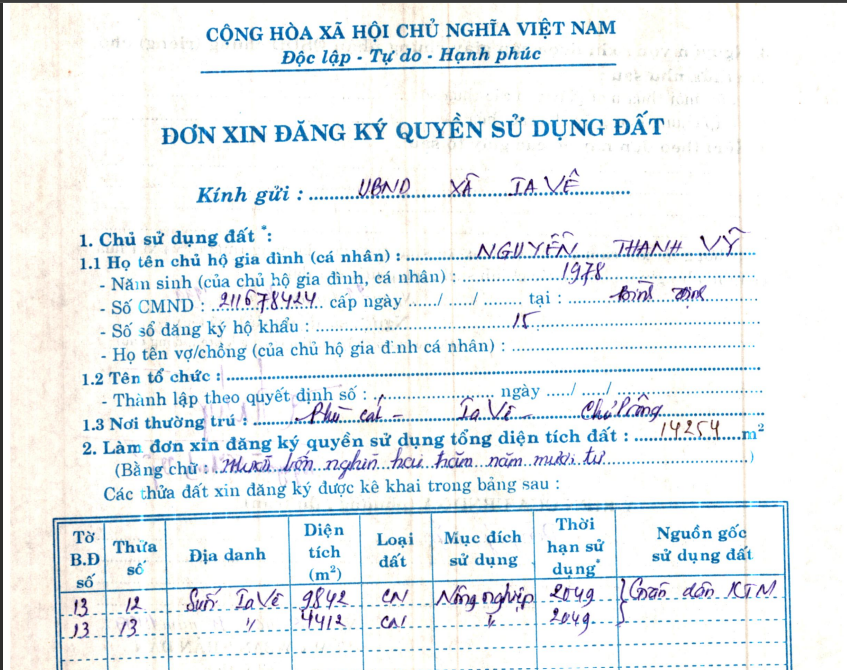 CỘNG HÒA XÃ HỘI CHỦ NGHĨA VIỆT NAM
Độc lập - Tự do - Hạnh phúc
ĐƠN XIN ĐĂNG KÝ QUYỀN SỬ DỤNG ĐẤT
Kính gửi : UBND XÃ IA VÊ
1. Chủ sử dụng đất *:
1.1 Họ tên chủ hộ gia đình (cá nhân) : NGUYỄN THANH VỸ
- Năm sinh (của chủ hộ gia đình, cá nhân) : 1978
- Số CMND : 211678424 cấp ngày ...../ ...../ ........ tại : Bình Định
- Số sổ đăng ký hộ khẩu : 15
- Họ tên vợ/chồng (của chủ hộ gia đình cá nhân) :
1.2 Tên tổ chức :
- Thành lập theo quyết định số : ngày ...../ ...../
1.3 Nơi thường trú : Phù cát - Ia Vê - Chư Prông
2. Làm đơn xin đăng ký quyền sử dụng tổng diện tích đất : 14254 m²
(Bằng chữ : Mười bốn nghìn hai trăm năm mươi tư )
Các thửa đất xin đăng ký được kê khai trong bảng sau :
Tờ B.Đ số Thửa số Địa danh Diện tích (m²) Loại đất Mục đích sử dụng Thời hạn sử dụng* Nguồn gốc sử dụng đất
13 12 Ia Vê 9842 CN Nông nghiệp 2049 dân KTM
13 13 " 4412 CN " 2049